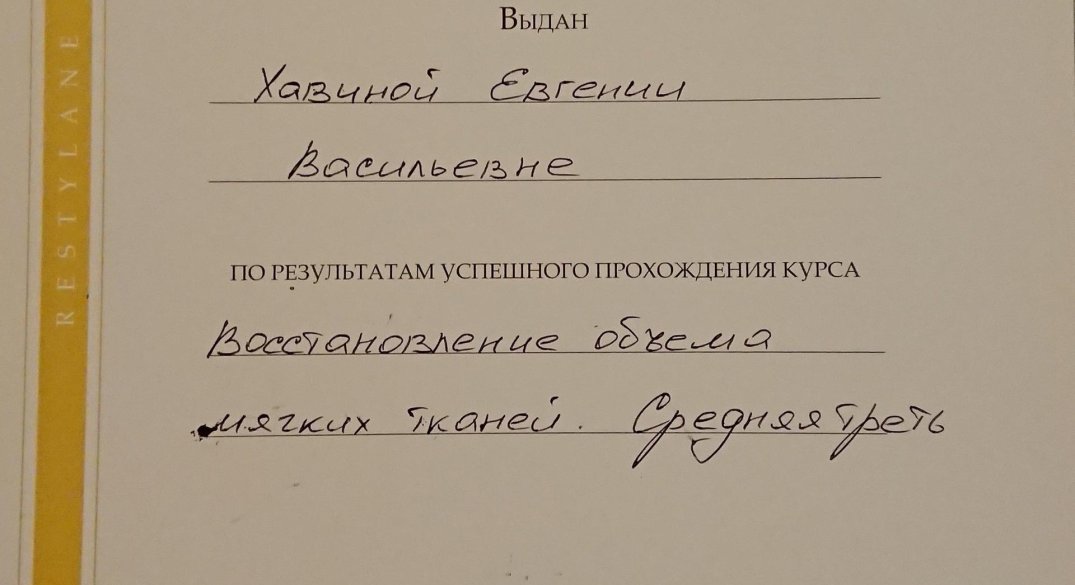 RESTYLANE
Выдан
Хавиной Евгении
Васильевне
ПО РЕЗУЛЬТАТАМ УСПЕШНОГО ПРОХОЖДЕНИЯ КУРСА
Восстановление объема
мягких тканей. Средняя треть